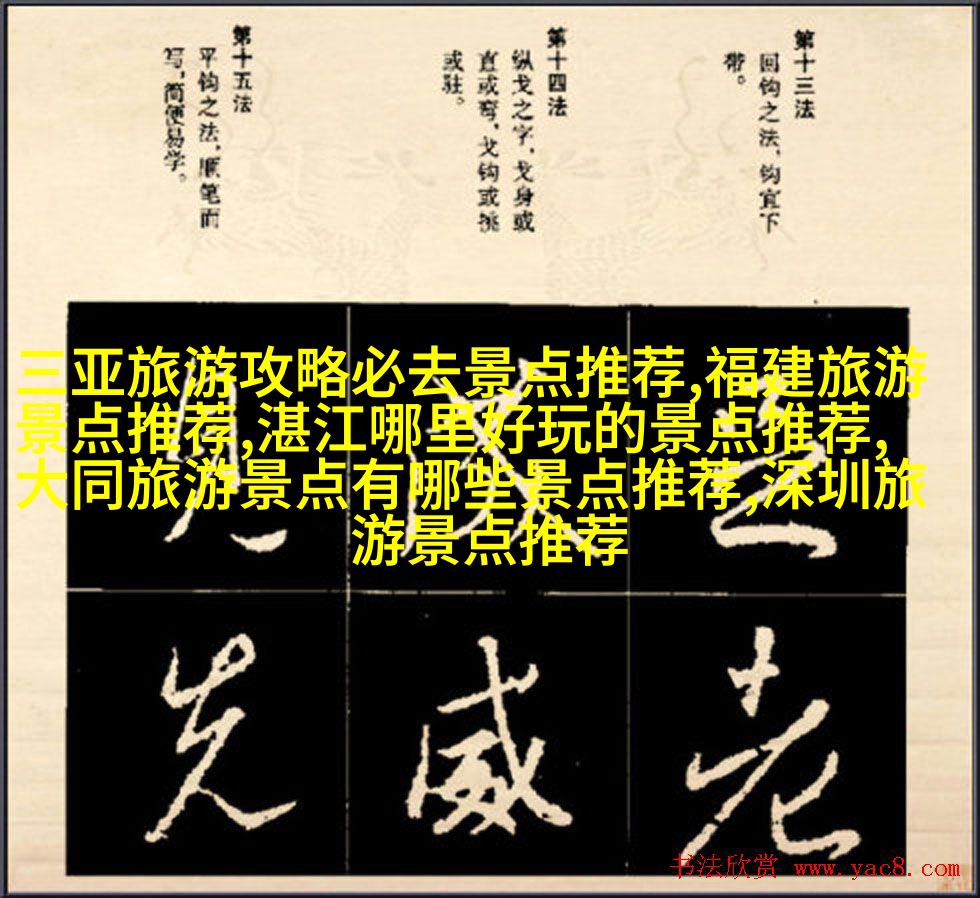 第十三法
回钩之法，钩宜下
带。
第十四法
纵戈之字，戈身或
直或弯，戈钩或挑
或驻。
第十五法
平钩之法，顺笔而
写，简便易学。
三亚旅游攻略必去景点推荐,福建旅游
景点推荐,湛江哪里好玩的景点推荐,
大同旅游景点有哪些景点推荐,深圳旅
游景点推荐
老
威
先
书法欣赏 www.yac8.com